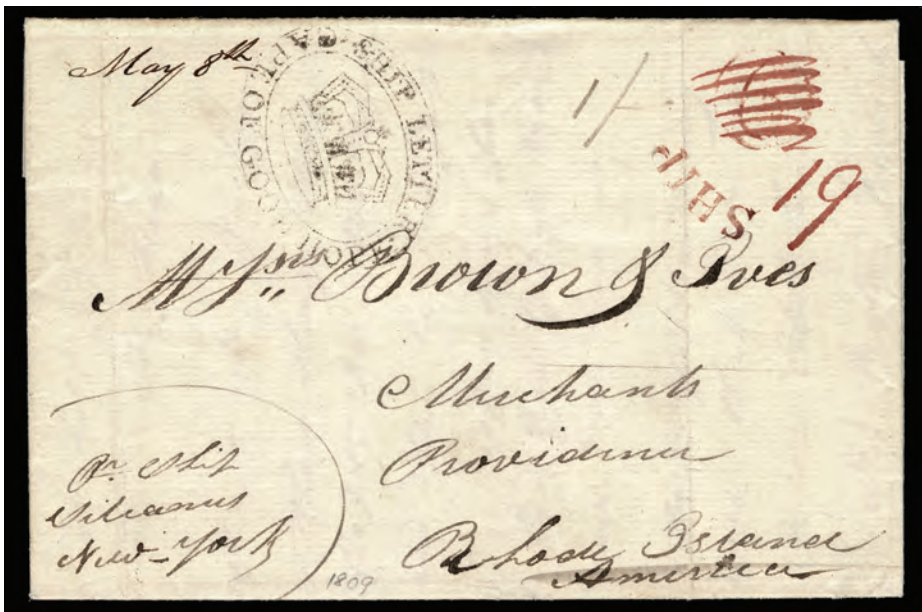 May 8th
SHIP LETTER CAPE OF GOOD HOPE
1/-
SHIP
19
Brown & Ives
Merchants
Providence
Rhode Island
America
Pr. Ship
New-York
1809